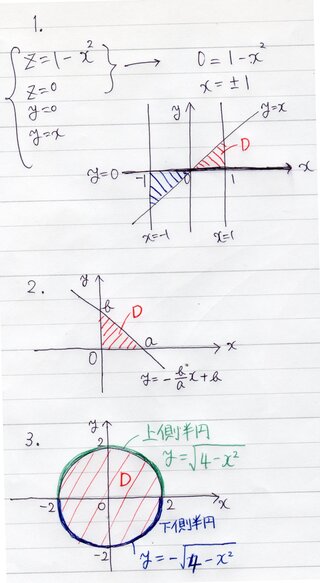 1.
z=1-x²
z=0
y=0
y=x
0=1-x²
x=±1
y
y=x
D
y=0
-1
0
1
x
x=-1
x=1
2.
y
b
D
0
a
x
y=-b/a x+b
3.
y
上側半円
2
y=√4-x²
D
-2
0
2
x
下側半円
-2
y=-√4-x²